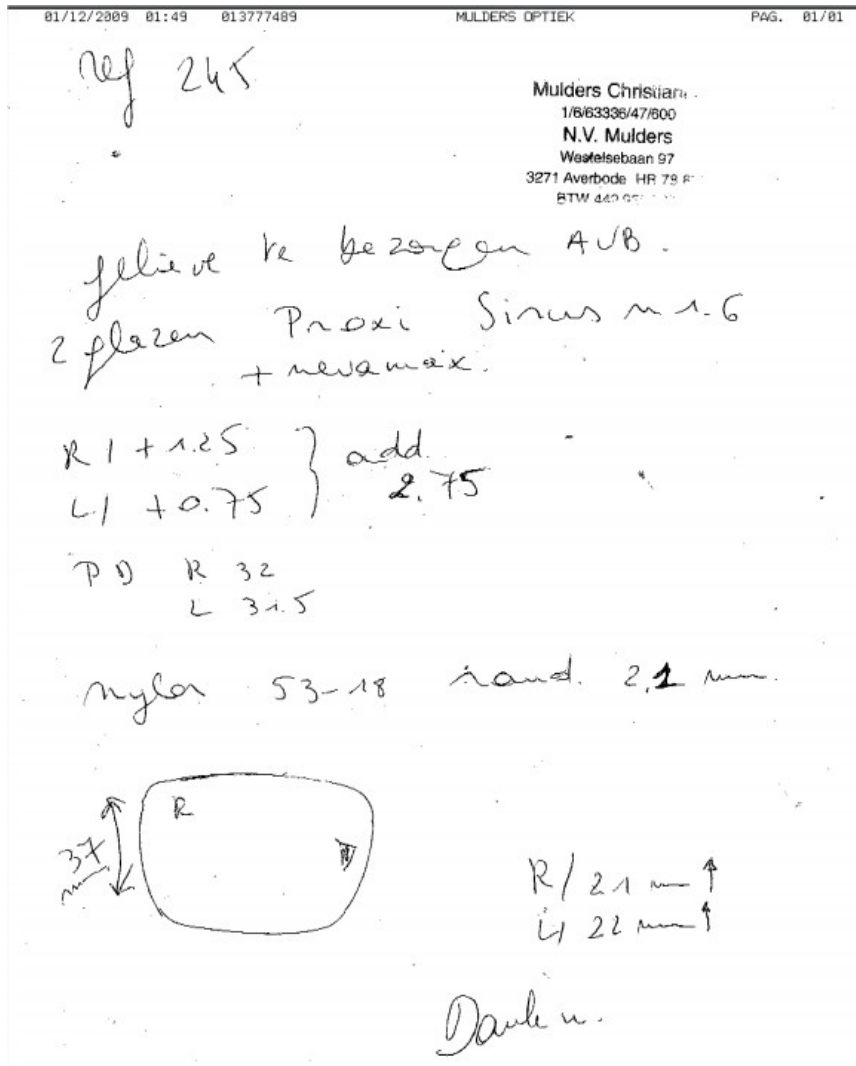 01/12/2009 01:49 013777489 MULDERS OPTIEK PAG. 01/01
ref 245
Mulders Christian
1/6/63336/47/600
N.V. Mulders
Westelsebaan 97
3271 Averbode HR 78
BTW 440
gelieve te bezorgen AUB.
2 glazen Proxi Sirus n 1.6
+ nevamax.
R/ + 1.25 } add.
L/ + 0.75 2.75
PD R 32
L 31.5
nylor 53-18 rand. 2,1 mm.
R
37
mm
R/ 21 mm ↑
L/ 22 mm ↑
Dank u.